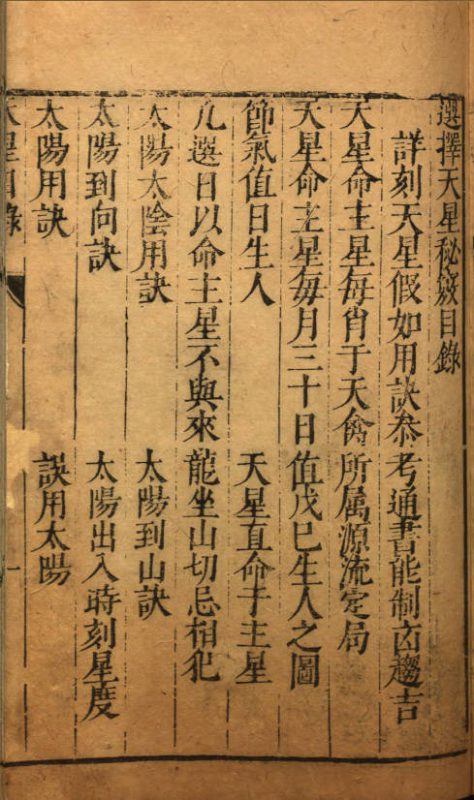 選擇天星秘竅目錄
詳刻天星假如用訣叅考通書能制㐫趨吉
天星命主星每肖于天禽所属源流定局
天星命主星毎月三十日值戊巳生人之圖
節氣值日生人　天星直命于主星
凡選日以命主星不與來龍坐山切忌相犯
太陽太陰用訣　太陽到山訣
太陽到向訣　太陽出入時刻星度
太陽用訣　誤用太陽
天星目錄　一